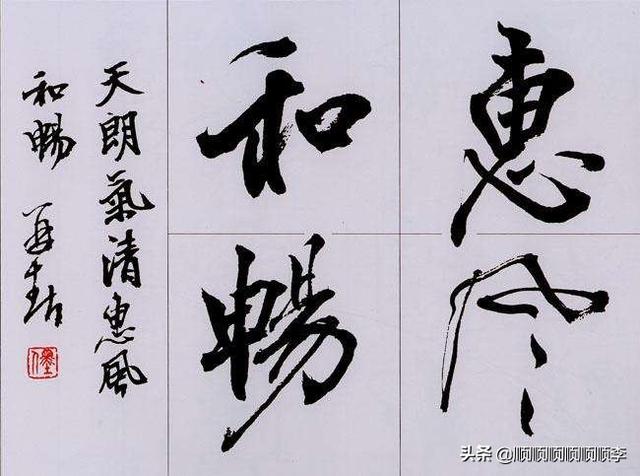 惠风
和暢
天朗氣清惠風
和暢
头条 @顺顺顺顺顺李